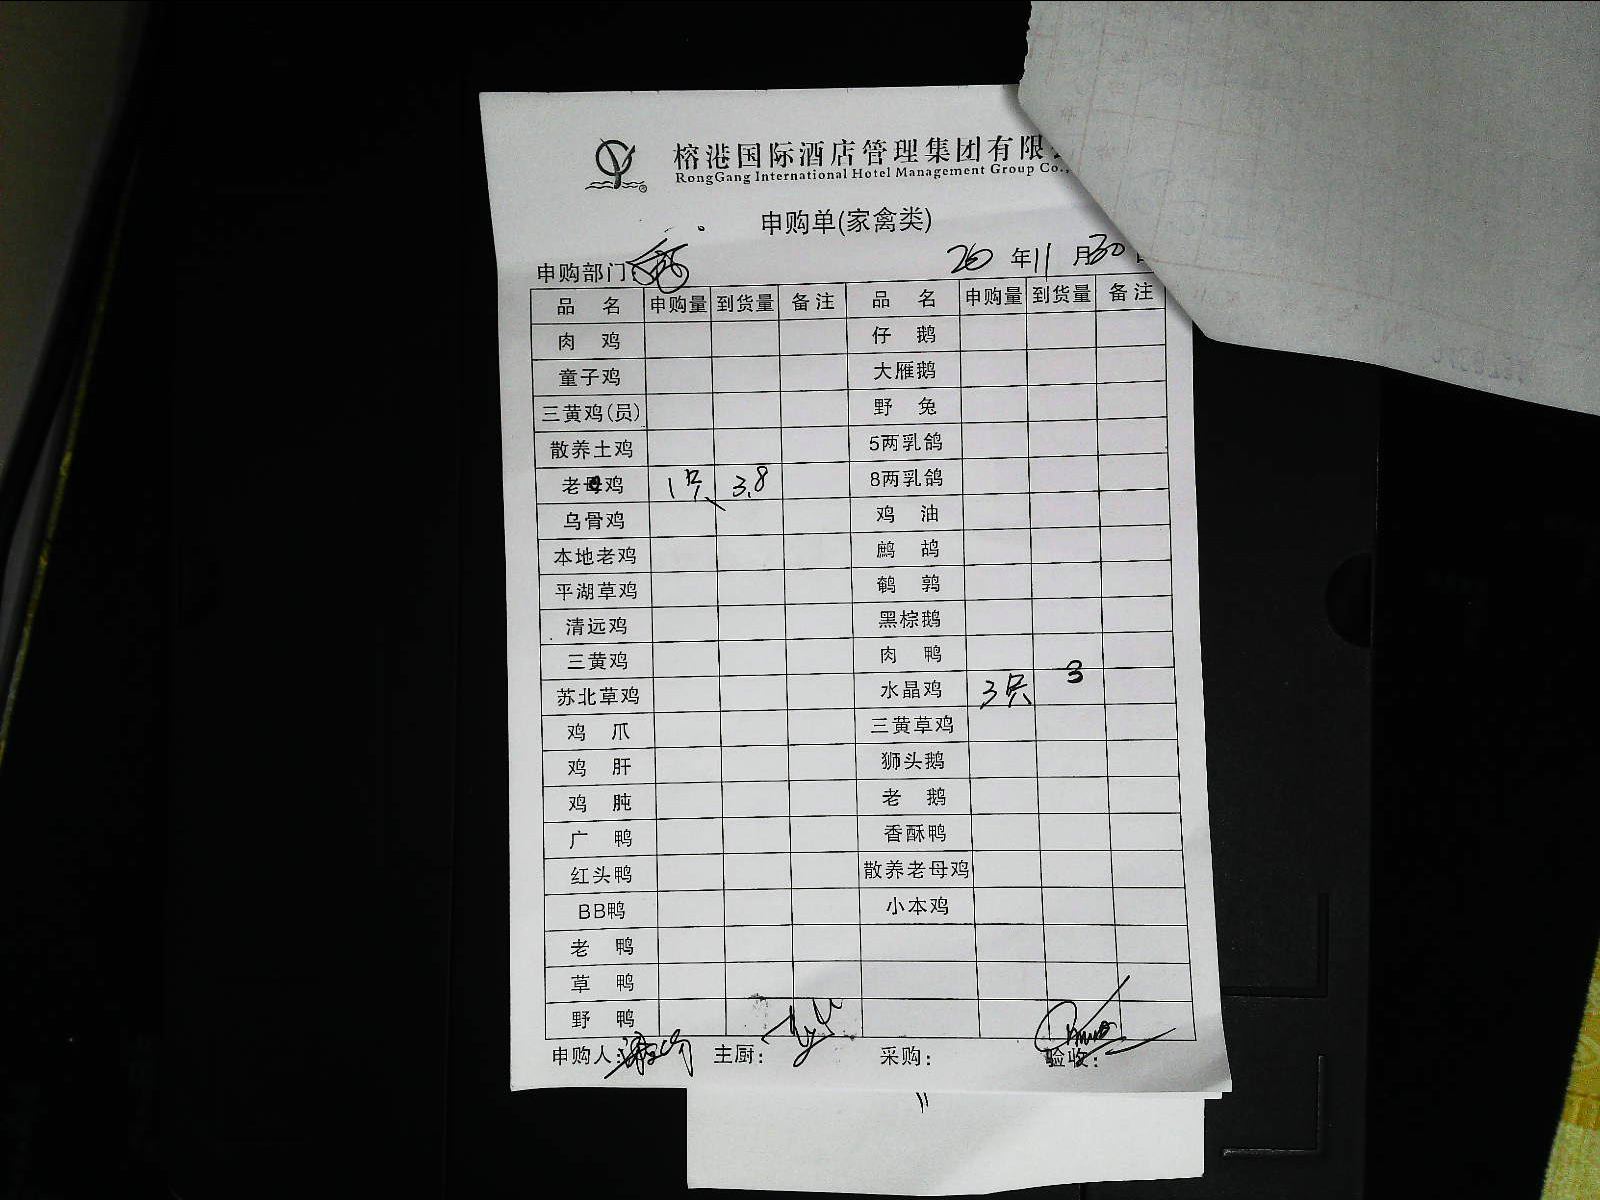 榕港国际酒店管理集团有限
RongGang International Hotel Management Group Co.,
申购单(家禽类)
申购部门: 年11月30
品 名 申购量 到货量 备注 品 名 申购量 到货量 备注
肉 鸡 仔 鹅
童子鸡 大雁鹅
三黄鸡(员) 野 兔
散养土鸡 5两乳鸽
老母鸡 1只 3.8 8两乳鸽
乌骨鸡 鸡 油
本地老鸡 鹧 鸪
平湖草鸡 鹌 鹑
清远鸡 黑棕鹅
三黄鸡 肉 鸭
苏北草鸡 水晶鸡 3只 3
鸡 爪 三黄草鸡
鸡 肝 狮头鹅
鸡 肫 老 鹅
广 鸭 香酥鸭
红头鸭 散养老母鸡
BB鸭 小本鸡
老 鸭
草 鸭
野 鸭
申购人: 主厨: 采购: 验收: